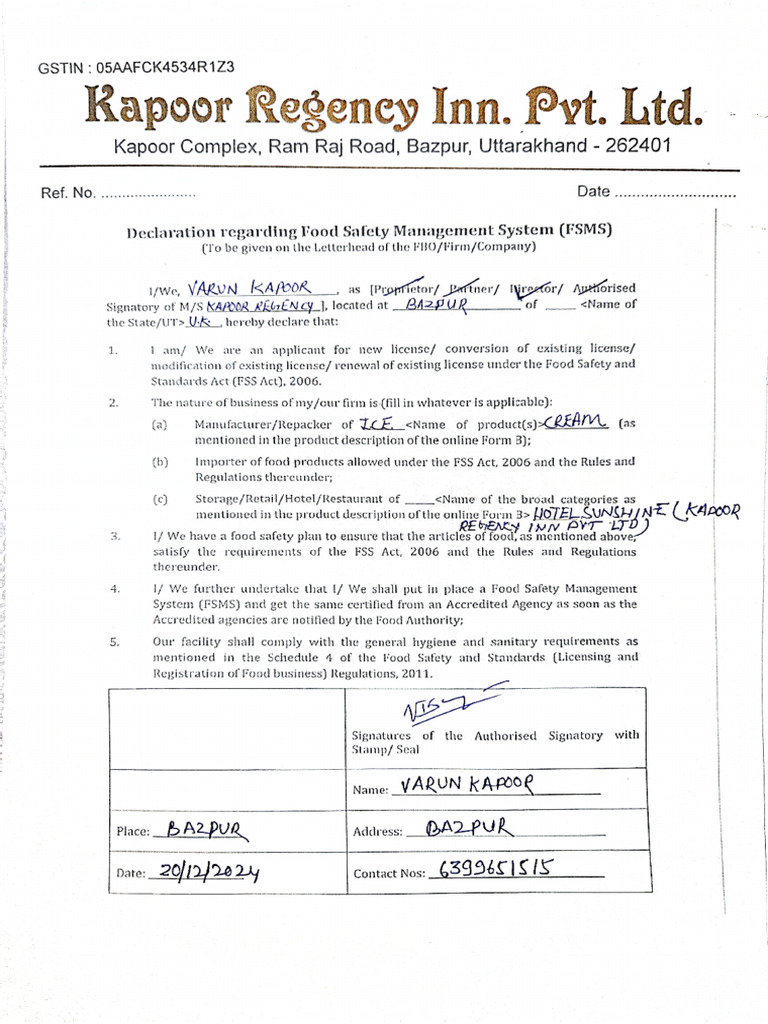 GSTIN : 05AAFCK4534R1Z3
Kapoor Regency Inn. Pvt. Ltd.
Kapoor Complex, Ram Raj Road, Bazpur, Uttarakhand - 262401
Ref. No. ...................... Date ............................
Declaration regarding Food Safety Management System (FSMS)
(To be given on the Letterhead of the FBO/Firm/Company)
I/We, VARUN KAPOOR, as [Proprietor/ Partner/ Director/ Authorised
Signatory of M/S KAPOOR REGENCY], located at BAZPUR of _____ <Name of
the State/UT> U.K, hereby declare that:
1. I am/ We are an applicant for new license/ conversion of existing license/
modification of existing license/ renewal of existing license under the Food Safety and
Standards Act (FSS Act), 2006.
2. The nature of business of my/our firm is (fill in whatever is applicable):
(a) Manufacturer/Repacker of ICE <Name of product(s)> CREAM (as
mentioned in the product description of the online Form B);
(b) Importer of food products allowed under the FSS Act, 2006 and the Rules and
Regulations thereunder;
(c) Storage/Retail/Hotel/Restaurant of _____<Name of the broad categories as
mentioned in the product description of the online Form B> HOTEL SUNSHINE (KAPOOR
REGENCY INN PVT LTD)
3. I/ We have a food safety plan to ensure that the articles of food, as mentioned above,
satisfy the requirements of the FSS Act, 2006 and the Rules and Regulations
thereunder.
4. I/ We further undertake that I/ We shall put in place a Food Safety Management
System (FSMS) and get the same certified from an Accredited Agency as soon as the
Accredited agencies are notified by the Food Authority;
5. Our facility shall comply with the general hygiene and sanitary requirements as
mentioned in the Schedule 4 of the Food Safety and Standards (Licensing and
Registration of Food business) Regulations, 2011.
Signatures of the Authorised Signatory with
Stamp/ Seal
Name: VARUN KAPOOR
Place: BAZPUR Address: BAZPUR
Date: 20/12/2024 Contact Nos: 6399651515